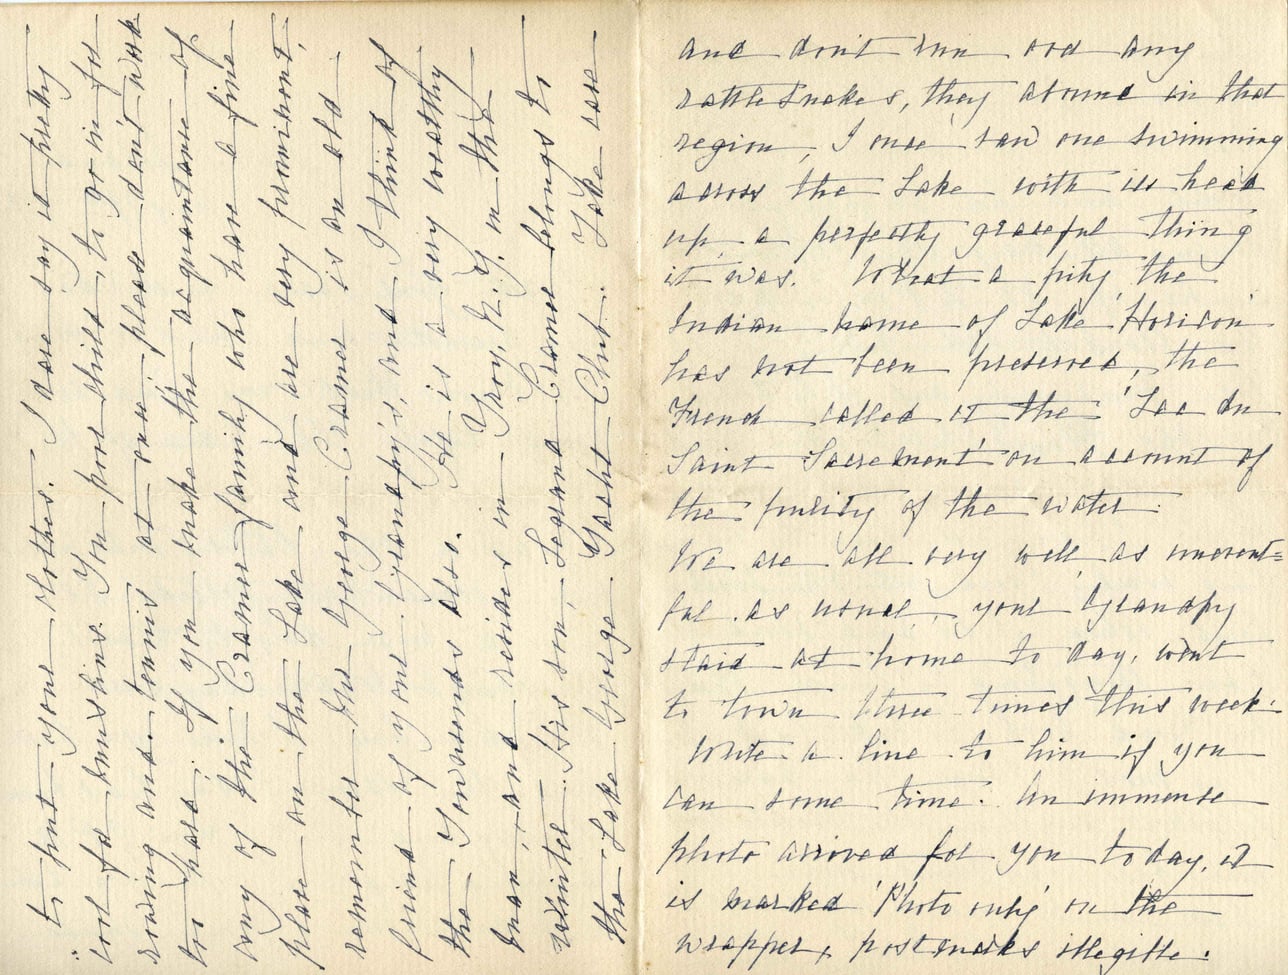 to put your clothes. I dare say it is pretty
cool for muslins. You poor child to go in for
rowing and tennis at once, please don't work
too hard. If you make the acquaintance of
any of the Cramer family who have a fine
place on the Lake and are very prominent,
remember Mr George Cramer is an old
friend of your Grandpy's, and I think of
the Townsends also. He is a very wealthy
man, and resides in Troy, N.Y. in the
winter. His son, Legrand Cramer belongs to
the Lake George Yacht Club. Take care
and don't run and any
rattle snakes, they abound in that
region, I once saw one swimming
across the Lake with its head
up, a perfectly graceful thing
it was. What a pity the
Indian name of Lake 'Horicon'
has not been preserved, the
French called it the 'Lac du
Saint Sacrement' on account of
the purity of the water.
We are all very well, as unevent=
ful as usual, your Grandpy
staid at home to day, went
to town three times this week.
Write a line to him if you
can some time. An immense
photo arrived for you today, it
is marked 'Photo only' on the
wrapper, postmarks illegible.